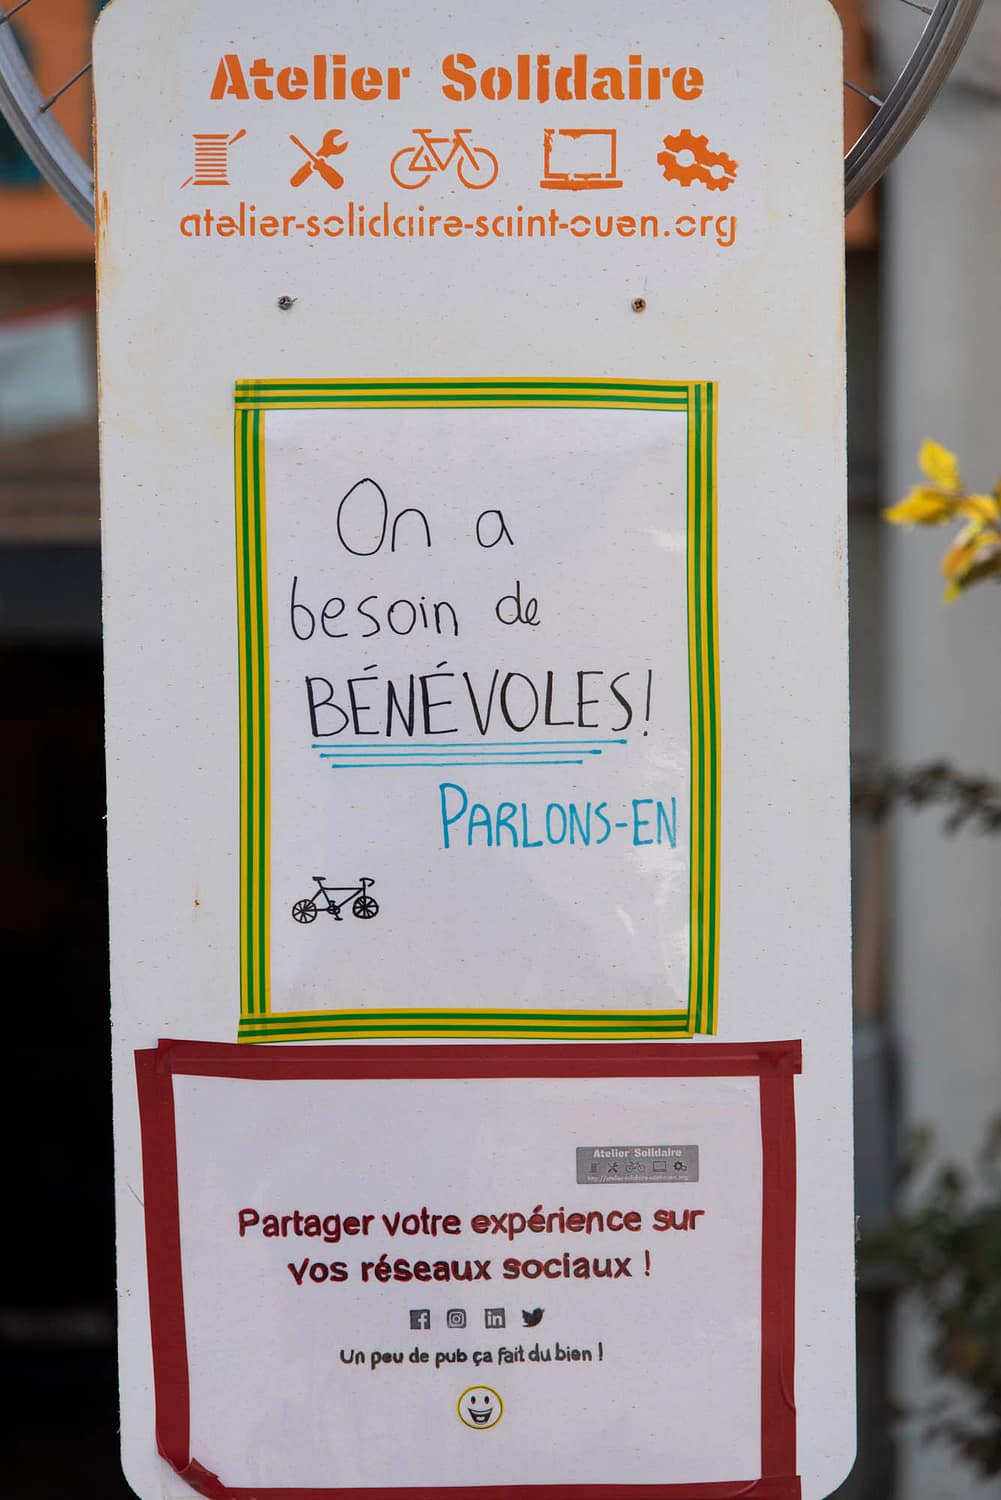 Atelier Solidaire
atelier-solidaire-saint-ouen.org
On a
besoin de
BÉNÉVOLES!
PARLONS-EN
Atelier Solidaire
Partager votre expérience sur
vos réseaux sociaux !
Un peu de pub ça fait du bien !